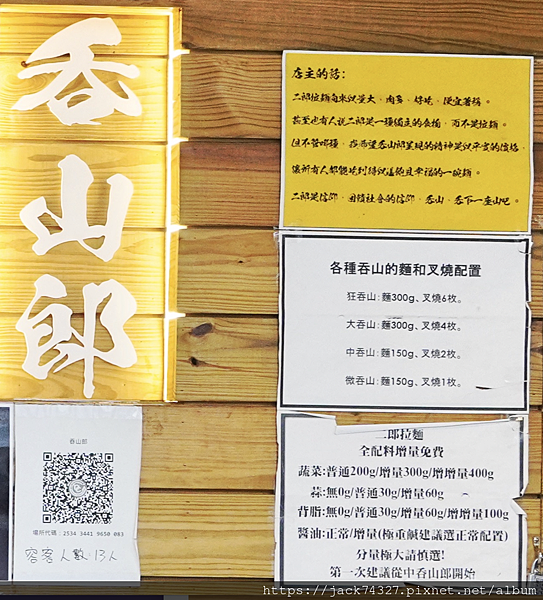 吞山郎
店主的話：
二郎拉麵向來以量大、肉多、好吃、便宜著稱。
甚至也有人說二郎是一種獨立的食物，而不是拉麵。
但不管哪種，我希望吞山郎呈現的精神是以平實的價格，
讓所有人都能吃到得以溫飽且幸福的一碗麵。
二郎是信仰，回饋社會的信仰，吞山，吞下一座山吧。
各種吞山的麵和叉燒配置
狂吞山：麵300g、叉燒6枚。
大吞山：麵300g、叉燒4枚。
中吞山：麵150g、叉燒2枚。
微吞山：麵150g、叉燒1枚。
二郎拉麵
全配料增量免費
蔬菜:普通200g/增量300g/增增量400g
蒜:無0g/普通30g/增量60g
背脂:無0g/普通30g/增量60g/增增量100g
醬油:正常/增量(極重鹹建議選正常配置)
分量極大請慎選!
第一次建議從中吞山郎開始
吞山郎
場所代碼：2534 3441 9650 083
容客人數:13人
https://jack74327.pixnet.net/album